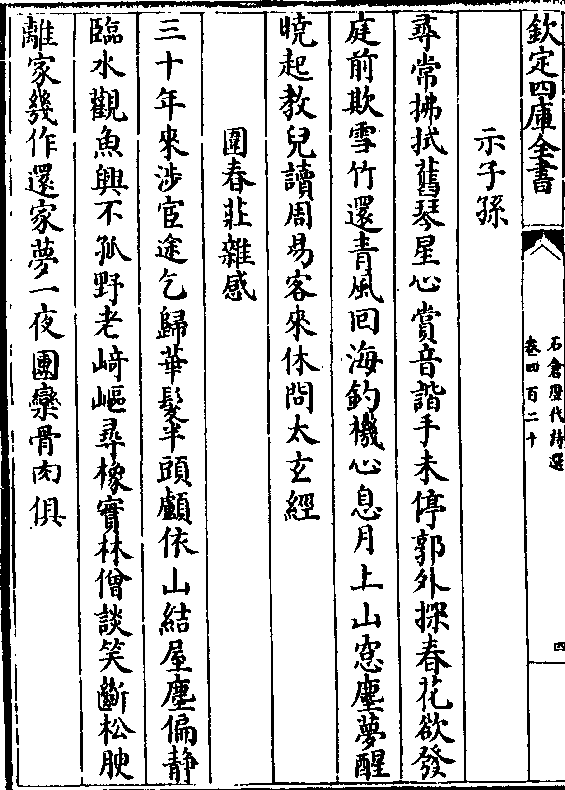 欽定四庫全書
石倉歷代詩選
卷四百二十
四
示子孫
尋常拂拭舊琴星心賞音諧手未停郭外探春花欲發
庭前欺雪竹還青風回海釣機心息月上山窓塵夢醒
曉起教兒讀周易客來休問太玄經
圍春莊雜感
三十年來涉宦途乞歸華髮半頭顱依山結屋塵偏静
臨水觀魚興不孤野老﨑嶇尋橡實林僧談笑斸松腴
離家幾作還家夢一夜團欒骨肉俱